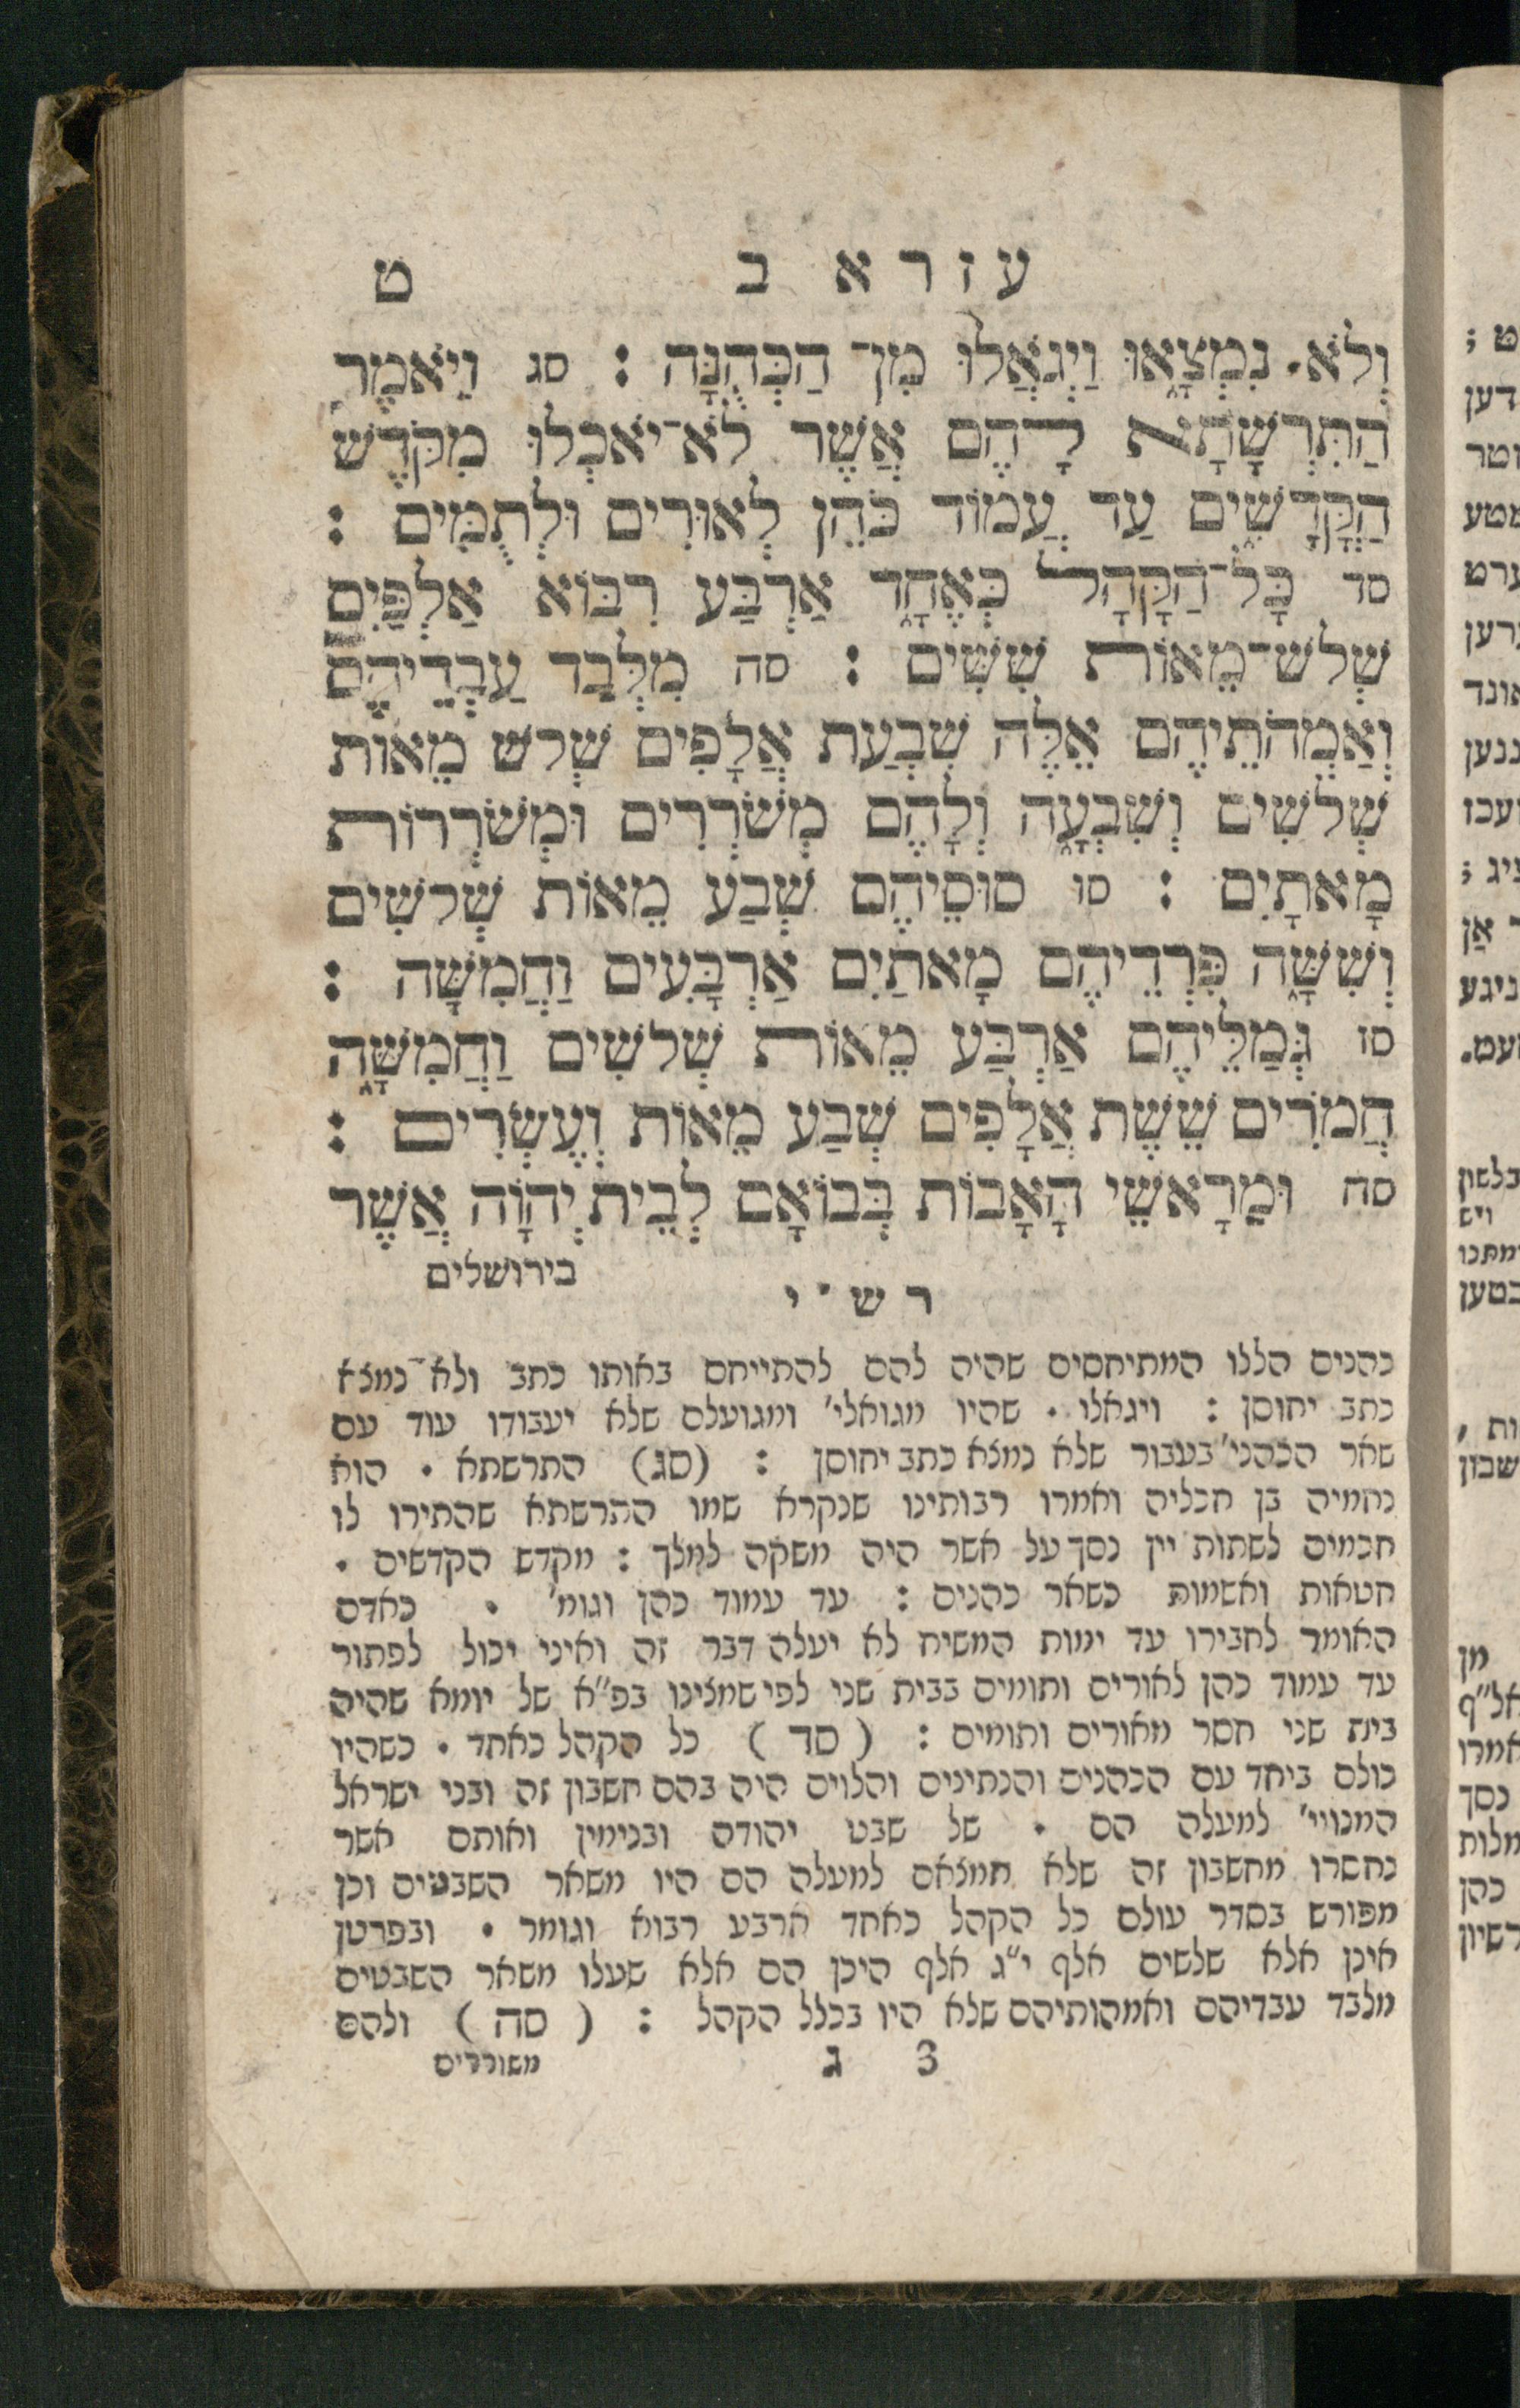 עזרא ב ט
וְלֹא נִמְצָאוּ וַיְגֹאֲלוּ מִן־ הַכְּהֻנָּה : סג וַיֹּאמֶר
הַתִּרְשָׁתָא לָהֶם אֲשֶׁר לֹא־יֹאכְלוּ מִקֹּדֶשׁ
הַקֳּדָשִׁים עַד עֲמוֹד כֹּהֵן לְאוּרִים וּלְתֻמִּים :
סד כָּל־הַקָּהָל כְּאֶחָד אַרְבַּע רִבּוֹא אַלְפַּיִם
שְׁלשׁ־מֵאוֹת שִׁשִּׁים : סה מִלְּבַד עַבְדֵיהֶם
וְאַמְהֹתֵיהֶם אֵלֶּה שִׁבְעַת אֲלָפִים שְׁלשׁ מֵאוֹת
שְׁלשִׁים וְשִׁבְעָה וְלָהֶם מְשֹׁרְרִים וּמְשֹׁרְרוֹת
מָאתָיִם : סו סוּסֵיהֶם שְׁבַע מֵאוֹת שְׁלשִׁים
וְשִׁשָּׁה פִּרְדֵיהֶם מָאתַיִם אַרְבָּעִים וַחֲמִשָּׁה :
סז גְּמַלֵּיהֶם אַרְבַּע מֵאוֹת שְׁלשִׁים וַחֲמִשָּׁה
חֲמֹרִים שֵׁשֶׁת אֲלָפִים שְׁבַע מֵאוֹת וְעֶשְׂרִים :
סח וּמֵרָאשֵׁי הָאָבוֹת בְּבוֹאָם לְבֵית יְהוָֹה אֲשֶׁר
בירושלים
רש״י
כהנים הללו המתיחסים שהיה להם להתייחס באותו כתב ולא נמצא
כתב יחוסן : ויגאלו . שהיו מגואלי' ומגועלם שלא יעבודו עוד עם
שאר הכהני' בעבור שלא נמצא כתב יחוסן : (סג) התרשתא . הוא
נחמיה בן חכליה ואמרו רבותינו שנקרא שמו התרשתא שהתירו לו
חכמים לשתות יין נסך על אשר היה משקה למלך : מקדש הקדשים .
חטאות ואשמות כשאר כהנים : עד עמוד כהן וגומ' . כאדם
האומר לחבירו עד ימות המשיח לא יעלה דבר זה ואיני יכול לפתור
עד עמוד כהן לאורים ותומים בבית שני לפי שמצינו בפ"א של יומא שהיה
בית שני חסר מאורים ותומים : (סד) כל הקהל כאחד . כשהיו
כולם ביחד עם הכהנים והנתינים והלוים היה בהם חשבון זה ובני ישראל
המנויי' למעלה הם . של שבט יהודה ובנימין ואותם אשר
נחסרו מחשבון זה שלא תמצאם למעלה הם היו משאר השבטים וכן
מפורש בסדר עולם כל הקהל כאחד ארבע רבוא וגומר . ובפרטן
אינן אלא שלשים אלף י"ג אלף היכן הם אלא שעלו משאר השבטים
מלבד עבדיהם ואמהותיהם שלא היו בכלל הקהל : (סה) ולהם
3 ג משוררים